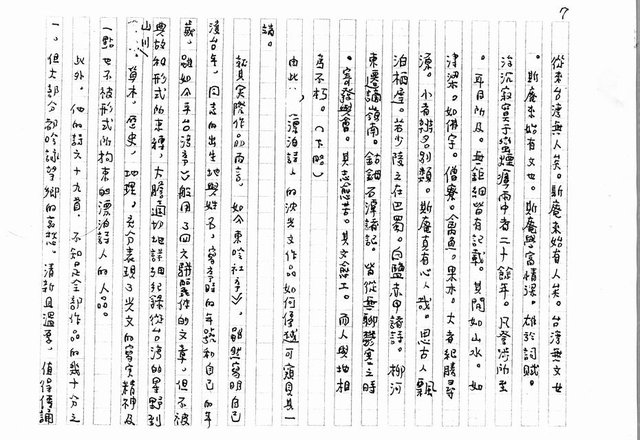 7
從來台灣無人矣。斯庵來始有人矣。台灣無文矣
。斯庵來始有文也。斯庵學富情深。雄於詞賦。
浮沉寂寞于蠻煙瘴雨中者二十餘年。凡登涉所至
。耳目所及。無鉅細皆有記載。其間如山水。如
津梁。如佛宇。僧寮。禽魚。果木。大者紀勝尋
源。小者辨名別類。斯庵真有心人哉。思古人飄
泊棲遲。若少陵之在巴蜀。白鹽赤甲諸詩。柳河
東遷謫嶺南。鈷鉧石潭諸記。皆從無聊鬱塞之時
。寄發興會。其志愈苦。其文愈工。而人與地相
為不朽。（下略）
由此，漂泊詩人的沈光文作品如何優越可窺其一
端。
就其實際作品而言，如《東吟社序》，雖然寫明自己
渡台年，同志的出生地與姓名，寫序時的年號和自己的年
歲，雖如《平台灣序》般用了四文駢麗體的文章，但不被
典故和形式所束縛，大膽適切地詳細紀錄從台灣的星野到
山川、草木，歷史，地理。充分表現了光文的寫實精神及
一點也不被形式所拘束的漂泊詩人的人品。
此外，他的詩文十九首，不知是全部作品的幾十分之
一。但大部分都吟詠望鄉的哀愁。清新且溫厚，值得傳誦